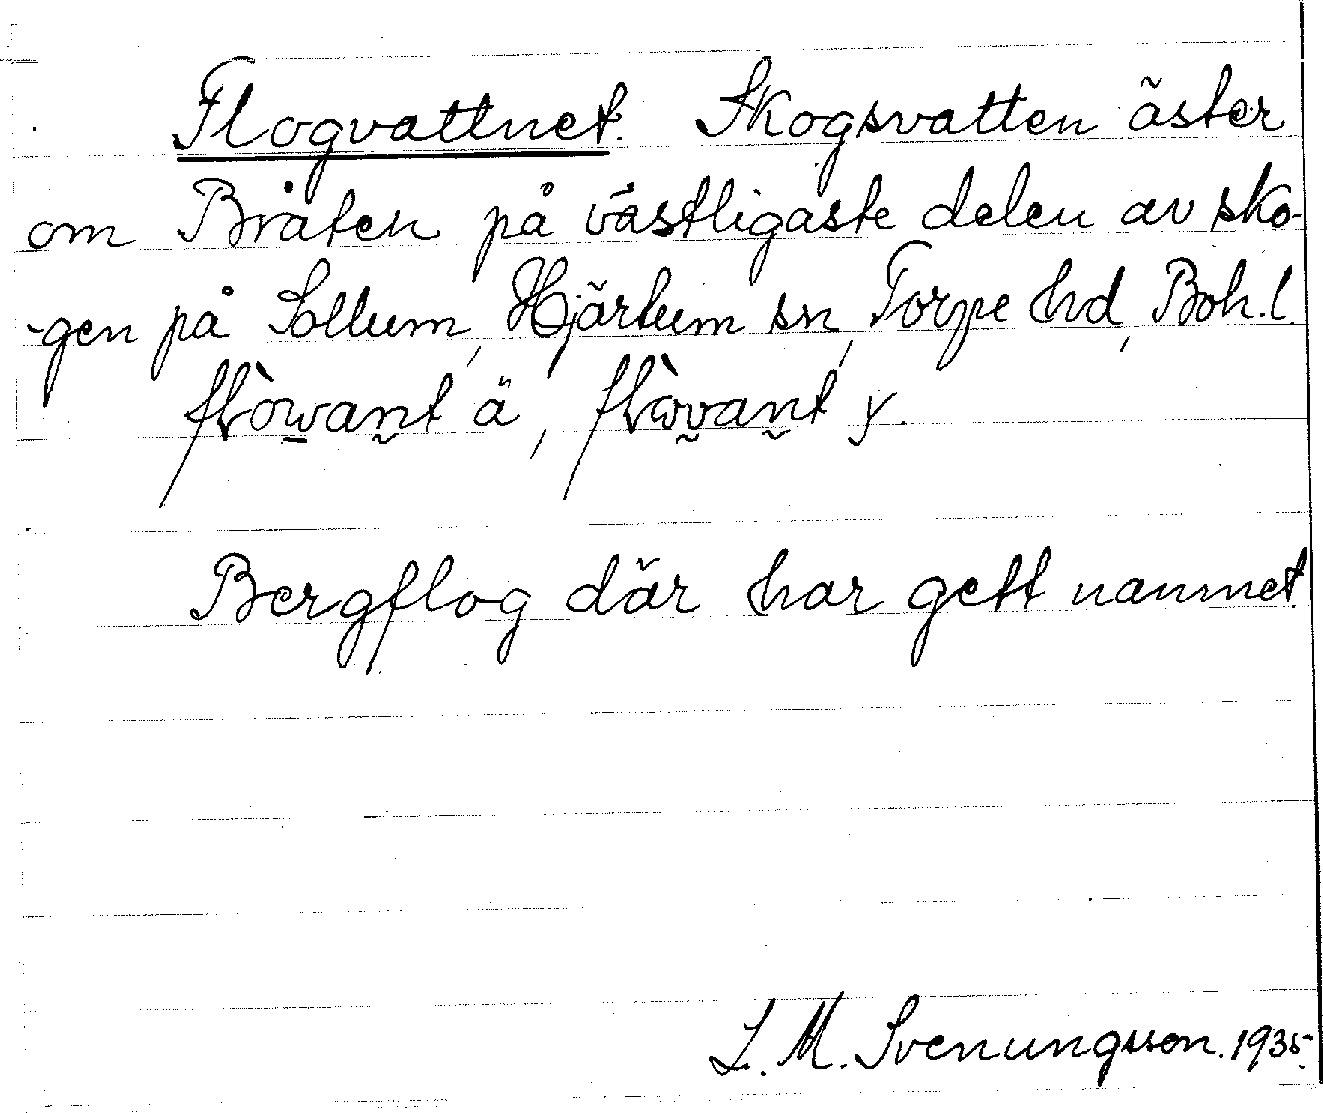 Flogvattnet. Skogsvatten öster
om Bråten på västligaste delen av sko-
-gen på Sollum, Hjärtum sn, Torpe hd, Boh. l.
flòwant ä, flòvant y.
Bergflog där har gett namnet.
L. M. Svenungsson. 1935.